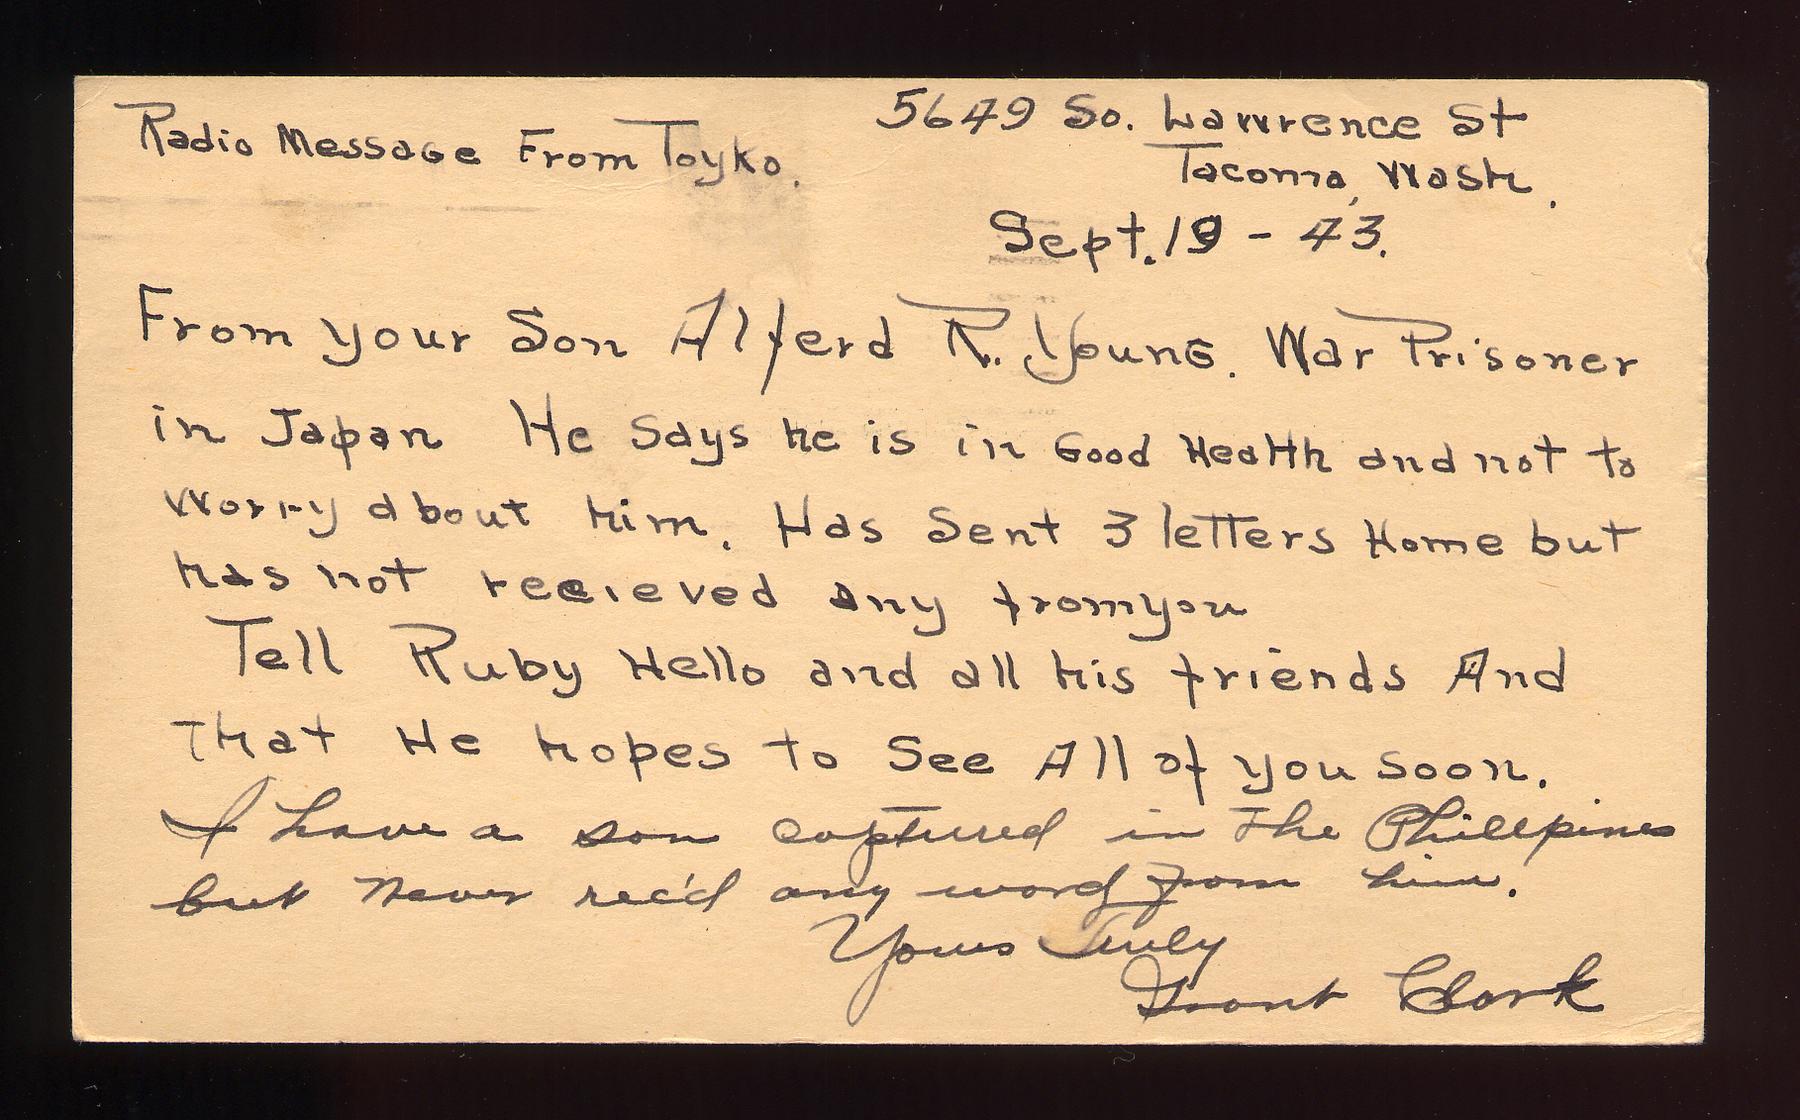 Radio Message From Toyko.
5649 So. Lawrence St
Tacoma, Wash.
Sept. 19 - 43.
From your Son Alferd R. Young. War Prisoner
in Japan He Says he is in Good Health and not to
Worry about him. Has Sent 3 letters Home but
has not recieved any from you
Tell Ruby Hello and all his friends And
That He hopes to See All of you soon.
I have a son captured in The Phillpines
but never rec'd any word from him.
Yours Truly
Grant Clark